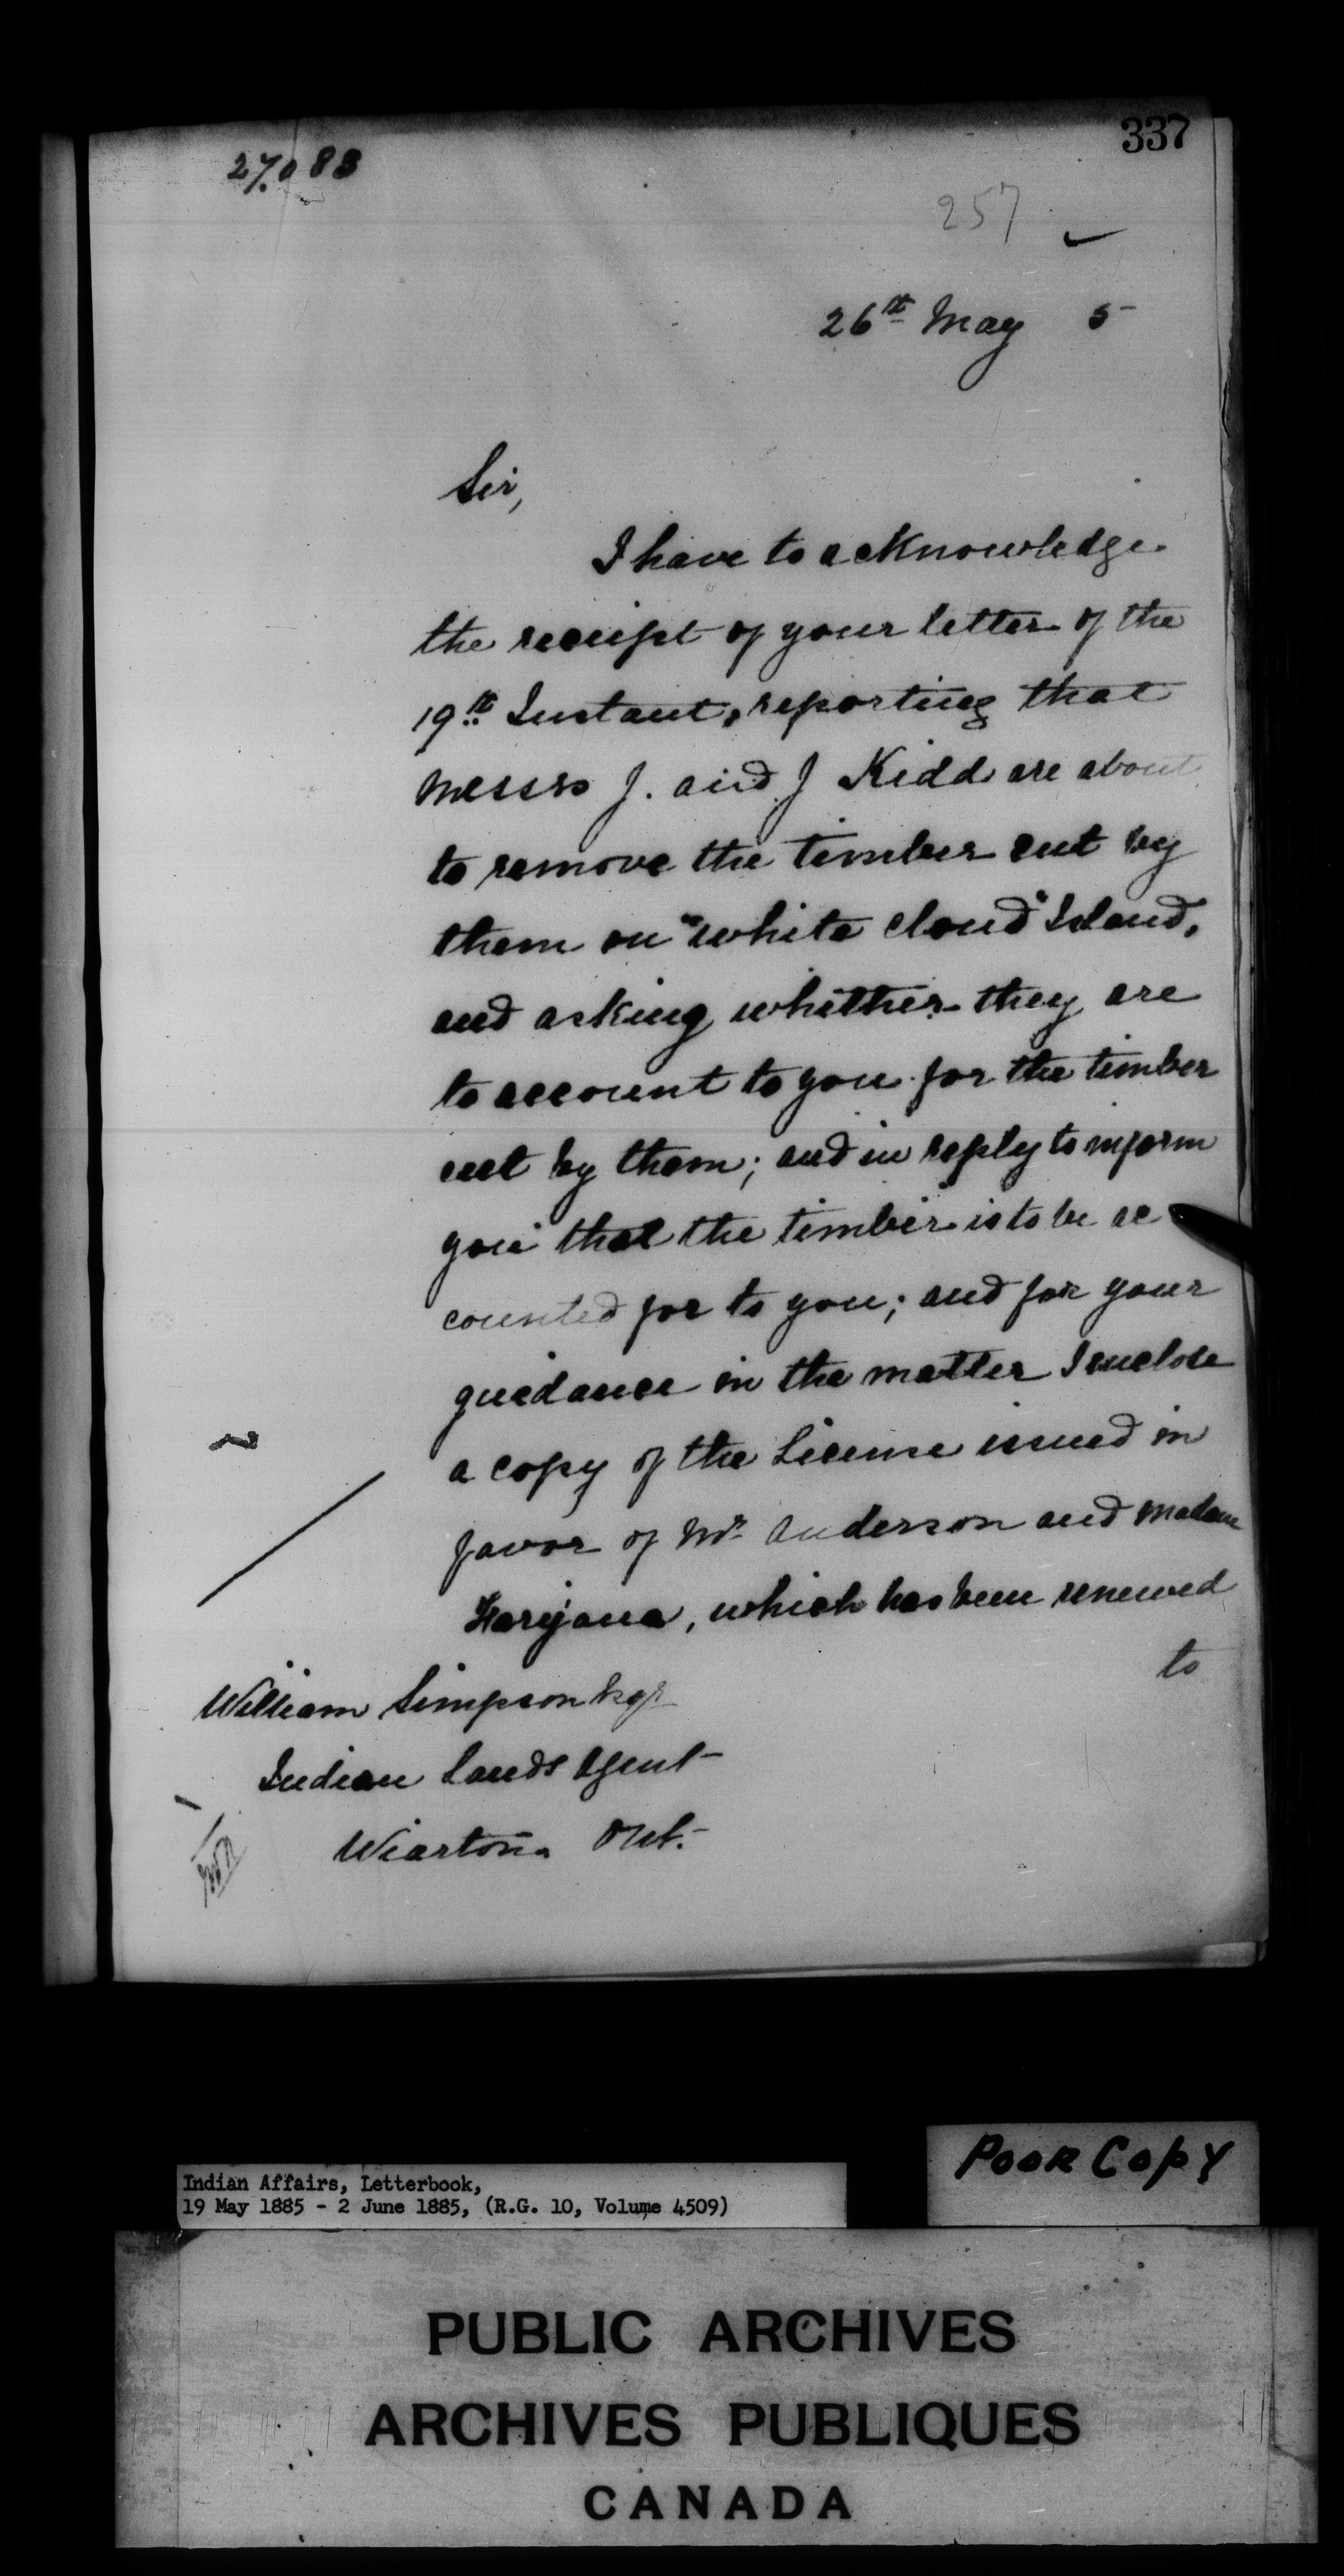 337
27.088
257
26th May 5
Sir,
I have to acknowledge
the receipt of your letter of the
19th Instant, reporting that
Messrs J. and J Kidd are about
to remove the timber cut by
them on "White Cloud" Island,
and asking whether they are
to account to you for the timber
cut by them; and in reply to inform
you that the timber is to be ac
counted for to you; and for your
guidance in the matter I enclose
a copy of the License issued in
favor of Mr. Anderson and Madame
which has been renewed
to
William Simpson Esqr
Indian Lands Agent
Wiarton Ont.
Poor Copy
Indian Affairs, Letterbook,
19 May 1885 - 2 June 1885, (R.G. 10, Volume 4509)
PUBLIC ARCHIVES
ARCHIVES PUBLIQUES
CANADA